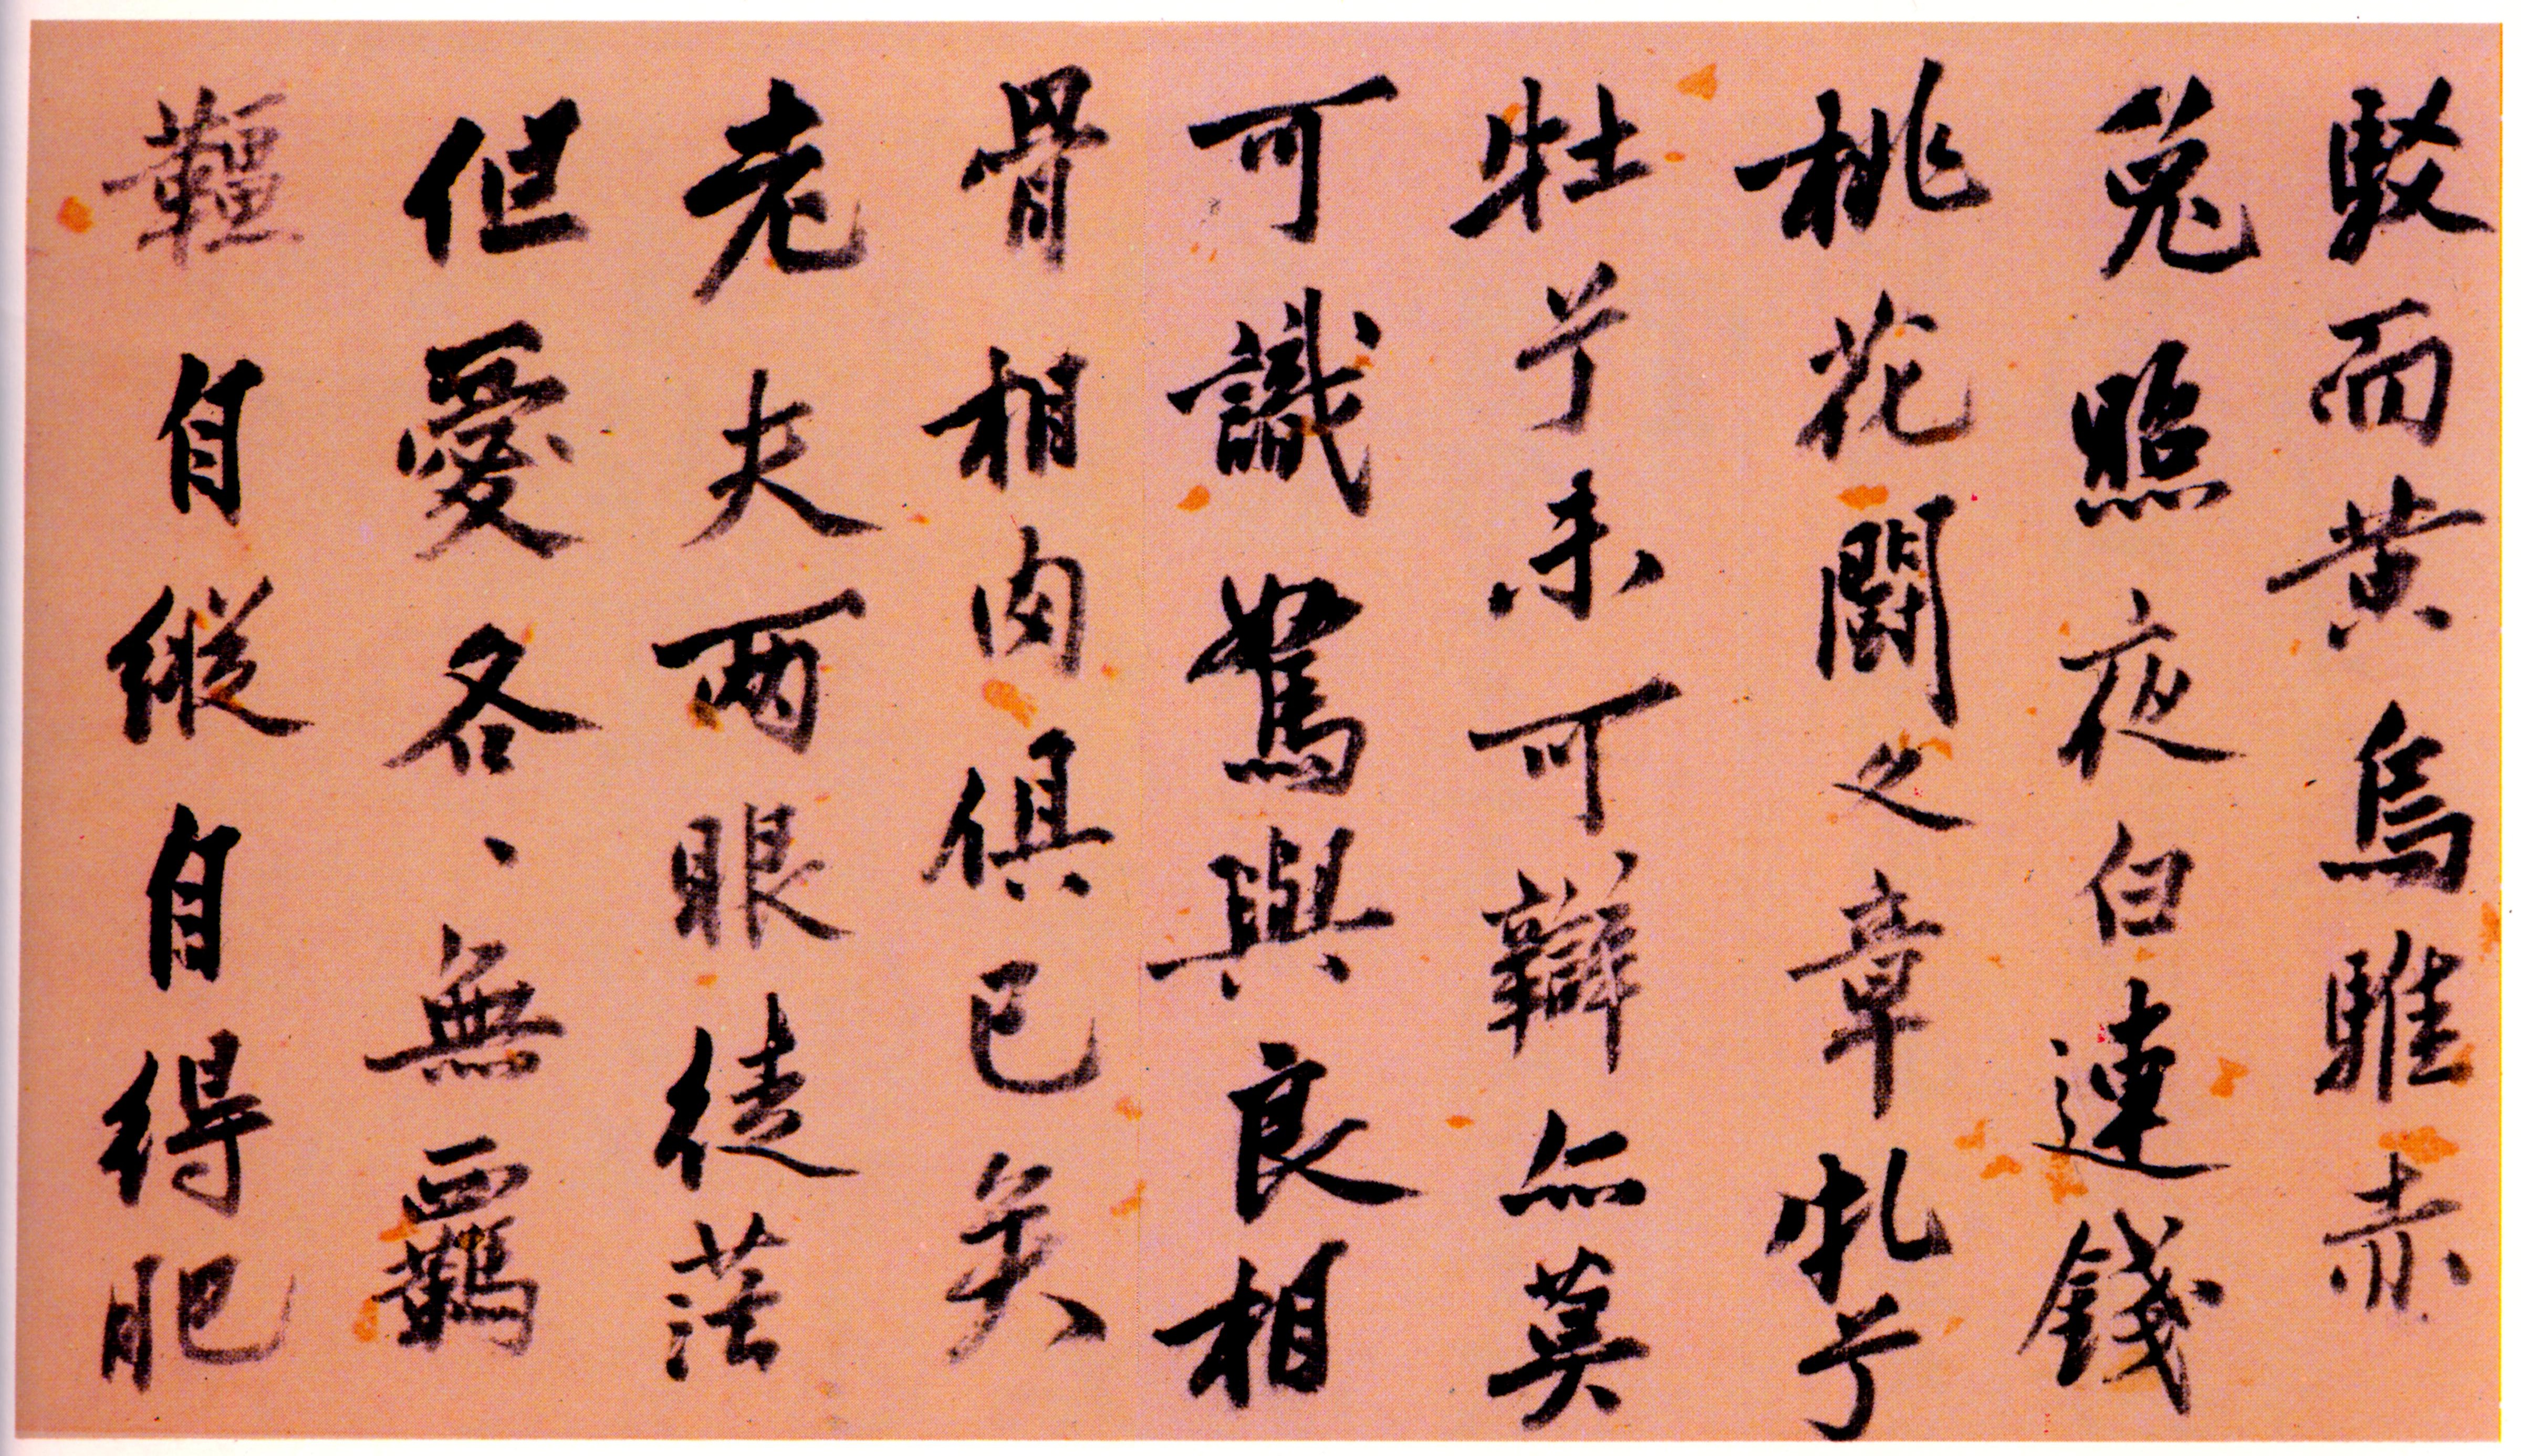 駁而黃烏騅赤
兔照夜白連錢
桃花闘之章牝兮
牡兮未可辯無莫
可識駑與良相
骨相肉俱已矣
老夫兩眼徒茫
但愛各、無羈
韁自縱自得肥